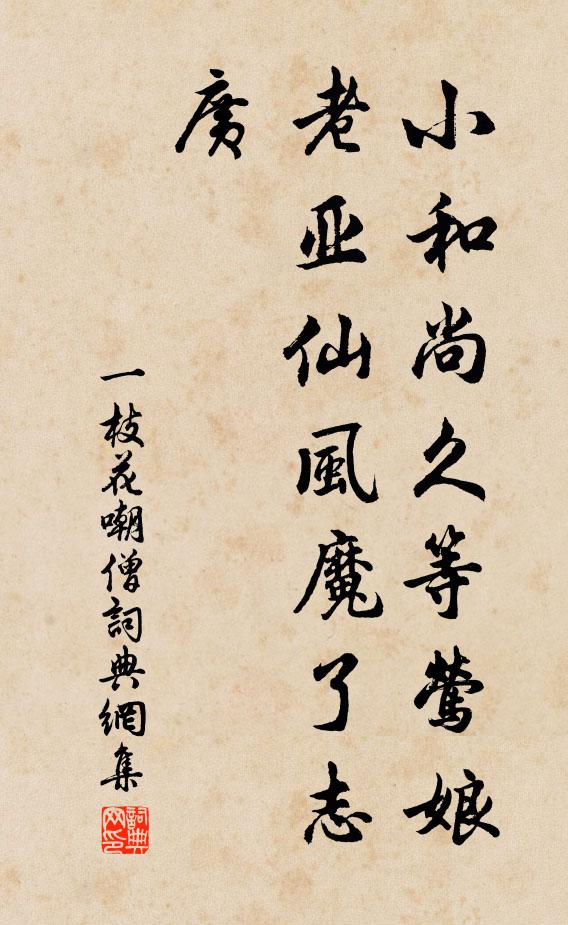 小和尚久等鶯娘
老亚仙風魔了志
廣
一枝花嘲僧詞典網集
詞典网印